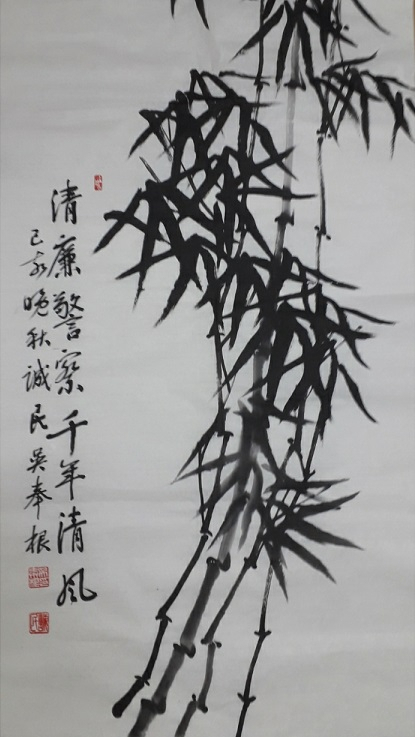 清廉警察千年清风
己亥晚秋诚民吴奉根